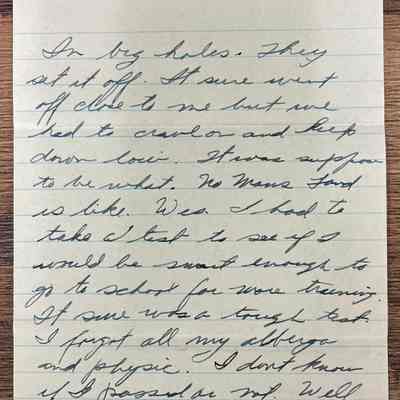 In big holes. They
set it off. It sure went
off close to me but we
had to crawl on and keep
down low. It was suppose
to be what. No Mans Land
is like. Wes. I had to
take a test to see if I
would be smart enough to
go to school for more training.
It sure was a tough test.
I forgot all my alberga
and physic. I dont know
if I passed or not. Well